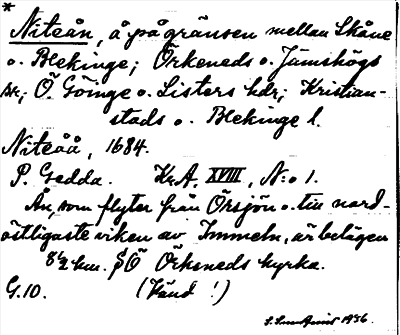 *
Niteån, å på gränsen mellan Skåne
o. Blekinge; Örkeneds o. Jämshögs
snr; Ö Göinge o. Listers hdr; Kristian-
stads o. Blekinge l.
Niteåå, 1684.
P. Gedda. Kr.A. XVIII, N:o 1.
Ån, som flyter från Örsjön o. till nord-
östligaste viken av Immeln, är belägen
8½ km. SÖ Örkeneds kyrka.
G.10. (Vänd!)
1936.